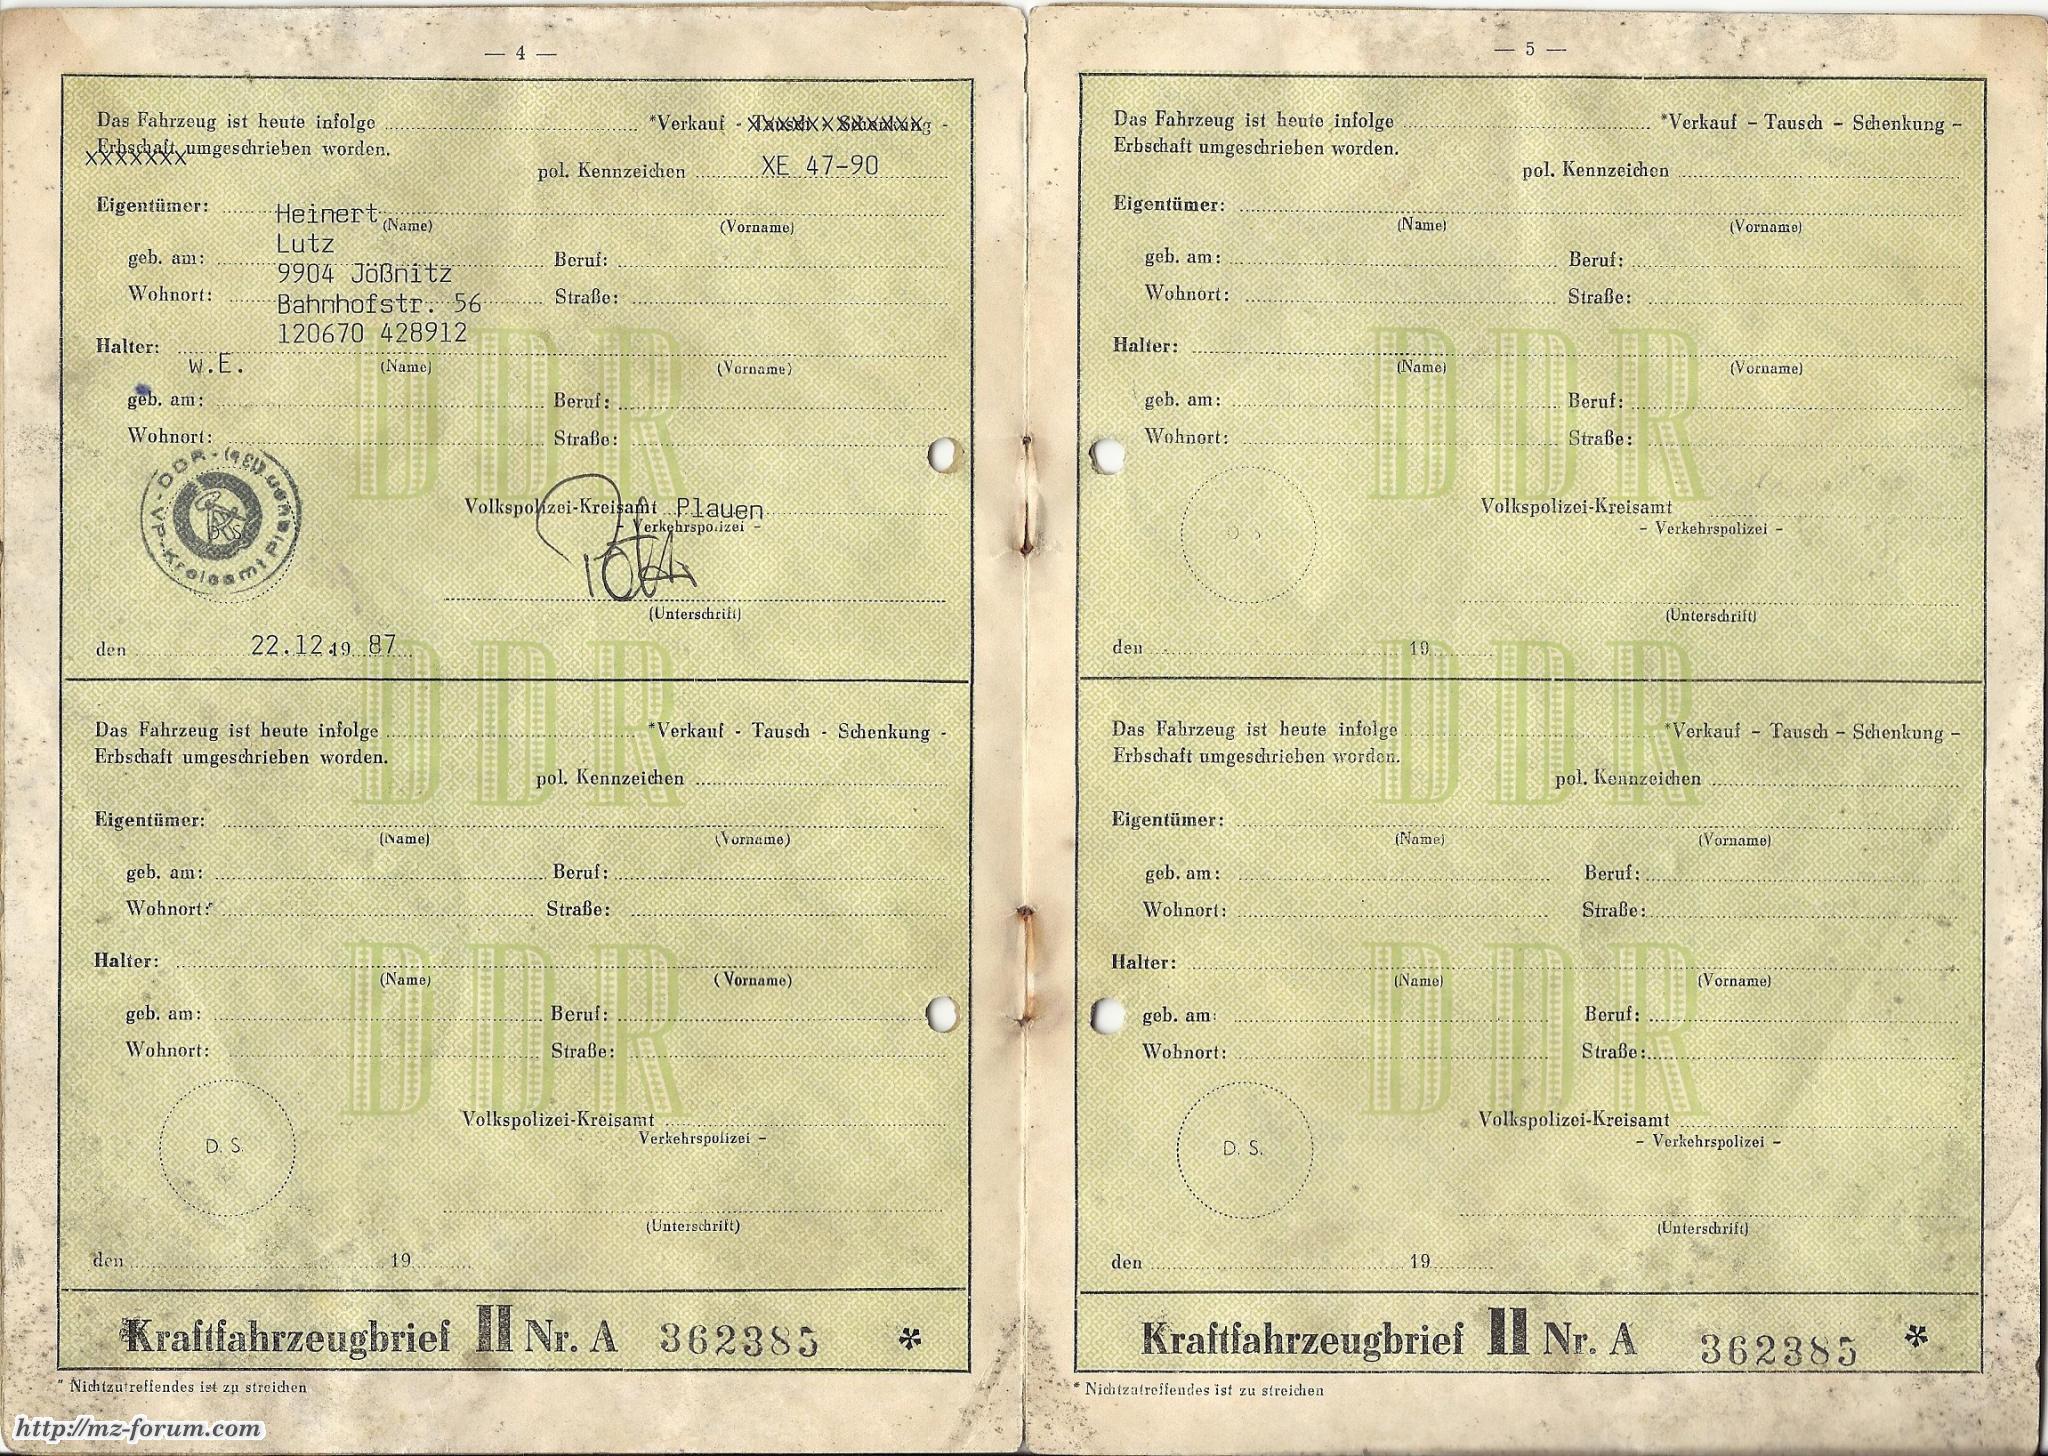 — 4 —
Das Fahrzeug ist heute infolge *Verkauf - Tausch - Schenkung -
Erbschaft umgeschrieben worden.
pol. Kennzeichen XE 47-90
Eigentümer: Heinert
(Name) (Vorname)
Lutz
geb. am: Beruf:
9904 Jößnitz
Wohnort: Straße:
Bahnhofstr. 56
120670 428912
Halter:
w.E. (Name) (Vorname)
geb. am: Beruf:
Wohnort: Straße:
DDR - (136)
VP-Kreisamt Plauen
Volkspolizei-Kreisamt Plauen
- Verkehrspolizei -
(Unterschrift)
den 22.12. 19 87
Das Fahrzeug ist heute infolge *Verkauf - Tausch - Schenkung -
Erbschaft umgeschrieben worden.
pol. Kennzeichen
Eigentümer:
(Name) (Vorname)
geb. am: Beruf:
Wohnort: Straße:
Halter:
(Name) (Vorname)
geb. am: Beruf:
Wohnort: Straße:
Volkspolizei-Kreisamt
Verkehrspolizei -
D. S.
(Unterschrift)
den 19
Kraftfahrzeugbrief II Nr. A 362385 *
* Nichtzutreffendes ist zu streichen
— 5 —
Das Fahrzeug ist heute infolge *Verkauf - Tausch - Schenkung -
Erbschaft umgeschrieben worden.
pol. Kennzeichen
Eigentümer:
(Name) (Vorname)
geb. am: Beruf:
Wohnort: Straße:
Halter:
(Name) (Vorname)
geb. am: Beruf:
Wohnort: Straße:
Volkspolizei-Kreisamt
- Verkehrspolizei -
D. S.
(Unterschrift)
den 19
Das Fahrzeug ist heute infolge *Verkauf - Tausch - Schenkung -
Erbschaft umgeschrieben worden.
pol. Kennzeichen
Eigentümer:
(Name) (Vorname)
geb. am: Beruf:
Wohnort: Straße:
Halter:
(Name) (Vorname)
geb. am: Beruf:
Wohnort: Straße:
Volkspolizei-Kreisamt
- Verkehrspolizei -
D. S.
(Unterschrift)
den 19
Kraftfahrzeugbrief II Nr. A 362385 *
* Nichtzutreffendes ist zu streichen
DDR
DDR
DDR
DDR
DDR
DDR
http://mz-forum.com